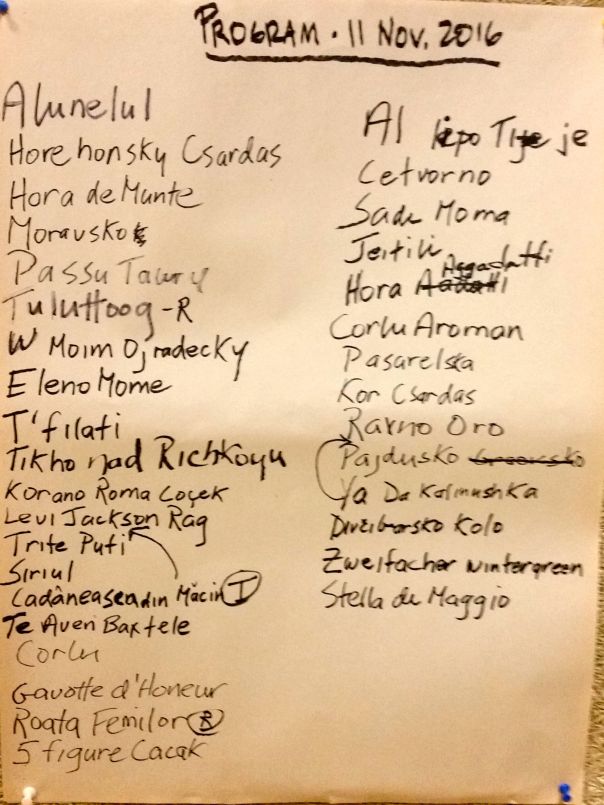 PROGRAM · 11 NOV. 2016
Alunelul
Horehonsky Csardas
Hora de Munte
Moravsko
Passu Taury
Tuluttoog -R
W Moim Ojradecky
Eleno Mome
T'filati
Tikho nad Richkoyu
Korano Roma Coçek
Levi Jackson Rag
Trite Puti
Siriul
Cadâneasca din Măcin I
Te Aven Baxtele
Corlu
Gavotte d'Honeur
Roata Femilor R
5 figure Cacak
Al lepo Tije je
Cetvorno
Sadi Moma
Jeitili
Hora Aggadatti
Corlu Aroman
Pasarelska
Kor Csardas
Ravno Oro
Pajdusko
Ya Da Kalinushka
Divčibarsko Kolo
Zweifacher Wintergreen
Stella di Maggio